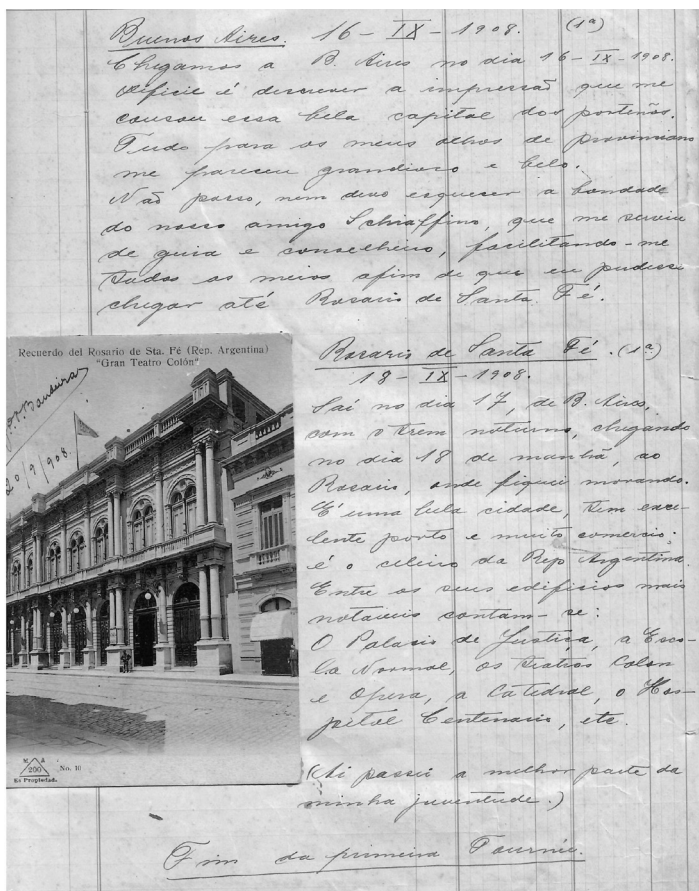 Buenos Aires. 16-IX-1908. (1ª)
Chegamos a B. Aires no dia 16-IX-1908.
Dificil é descrever a impressaõ que me
causou essa bela capital dos porteños.
Tudo para os meus olhos de provinciano
me pareceu grandioso e belo.
Naõ posso, nem devo esquecer a bondade
do nosso amigo Schiaffino, que me serviu
de guia e conselheiro, facilitando-me
todos os meios afim de que eu pudesse
chegar até Rosario de Santa Fé.
Recuerdo del Rosario de Sta. Fé (Rep. Argentina)
"Gran Teatro Colón"
J. P. Bandeira
20/9/908.
W. A
200
No. 10
Es Propiedad.
Rosario de Santa Fé. (1ª)
18-IX-1908.
Saí no dia 17, de B. Aires,
com o trem noturno, chegando
no dia 18 de manhã, ao
Rosario, onde fiquei morando.
É uma bela cidade, tem exce-
lente porto e muito comercio;
é o celeiro da Rep. Argentina.
Entre os seus edificios mais
notaveis contam-se:
O Palacio de Justiça, a Esco-
la Normal, os teatros Colon
e Opera, a Catedral, o Hos-
pital Centenario, etc.
(Ai passei a melhor parte da
minha juventude.)
Fim da primeira Tournée.